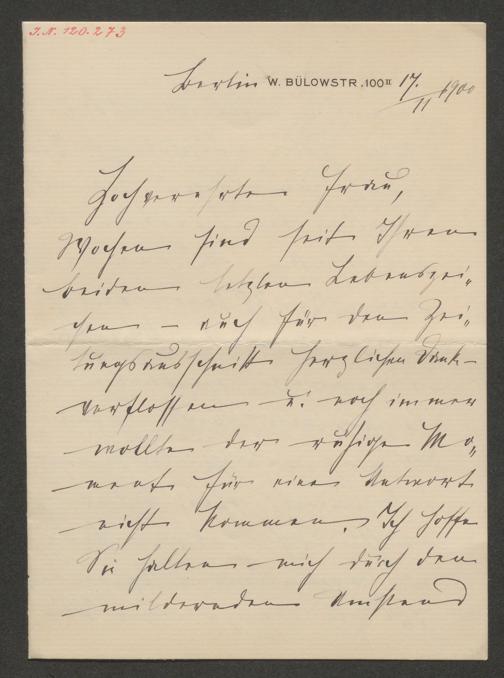 I.N. 120.273
Berlin W. BÜLOWSTR. 100 II 17./11 1900
Hochverehrte Frau,
Wochen sind seit Ihren
beiden letzten Lebenszei„
chen – auch für den Zei„
tungsausschnitt herzlichen Dank –
verflossen u. noch immer
wollte der ruhige Mo„
ment für eine Antwort
nicht kommen. Ich hoffe
Sie halten mich durch den
mildernden Umstand